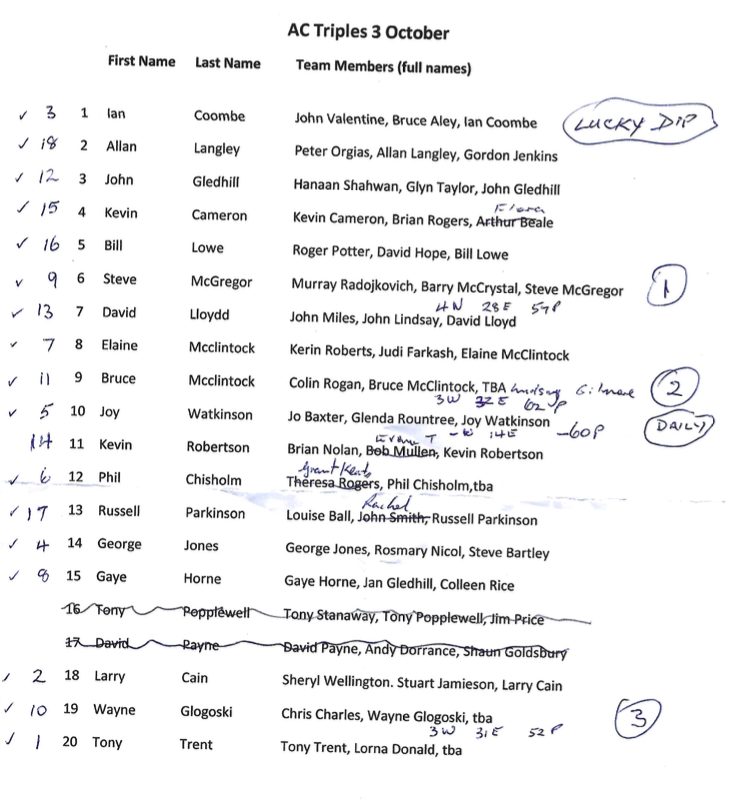 AC Triples 3 October
First Name Last Name Team Members (full names)
✓ 3 1 Ian Coombe John Valentine, Bruce Aley, Ian Coombe LUCKY DIP
✓ 18 2 Allan Langley Peter Orgias, Allan Langley, Gordon Jenkins
✓ 12 3 John Gledhill Hanaan Shahwan, Glyn Taylor, John Gledhill
Flora
✓ 15 4 Kevin Cameron Kevin Cameron, Brian Rogers, Arthur Beale
✓ 16 5 Bill Lowe Roger Potter, David Hope, Bill Lowe
✓ 9 6 Steve McGregor Murray Radojkovich, Barry McCrystal, Steve McGregor 1
4N 28E 57P
✓ 13 7 David Lloydd John Miles, John Lindsay, David Lloyd
✓ 7 8 Elaine Mcclintock Kerin Roberts, Judi Farkash, Elaine McClintock
✓ 11 9 Bruce Mcclintock Colin Rogan, Bruce McClintock, TBA Lindsay Gilmore 2
3W 32E 62P
✓ 5 10 Joy Watkinson Jo Baxter, Glenda Rountree, Joy Watkinson DAILY
T 14E -60P
14 11 Kevin Robertson Brian Nolan, Bob Mullen, Kevin Robertson
Grant Keats
✓ 6 12 Phil Chisholm Theresa Rogers, Phil Chisholm,tba
Rachel
✓ 17 13 Russell Parkinson Louise Ball, John Smith, Russell Parkinson
✓ 4 14 George Jones George Jones, Rosmary Nicol, Steve Bartley
✓ 8 15 Gaye Horne Gaye Horne, Jan Gledhill, Colleen Rice
16 Tony Popplewell Tony Stanaway, Tony Popplewell, Jim Price
17 David Payne David Payne, Andy Dorrance, Shaun Goldsbury
✓ 2 18 Larry Cain Sheryl Wellington. Stuart Jamieson, Larry Cain
✓ 10 19 Wayne Glogoski Chris Charles, Wayne Glogoski, tba 3
3W 31E 52P
✓ 1 20 Tony Trent Tony Trent, Lorna Donald, tba